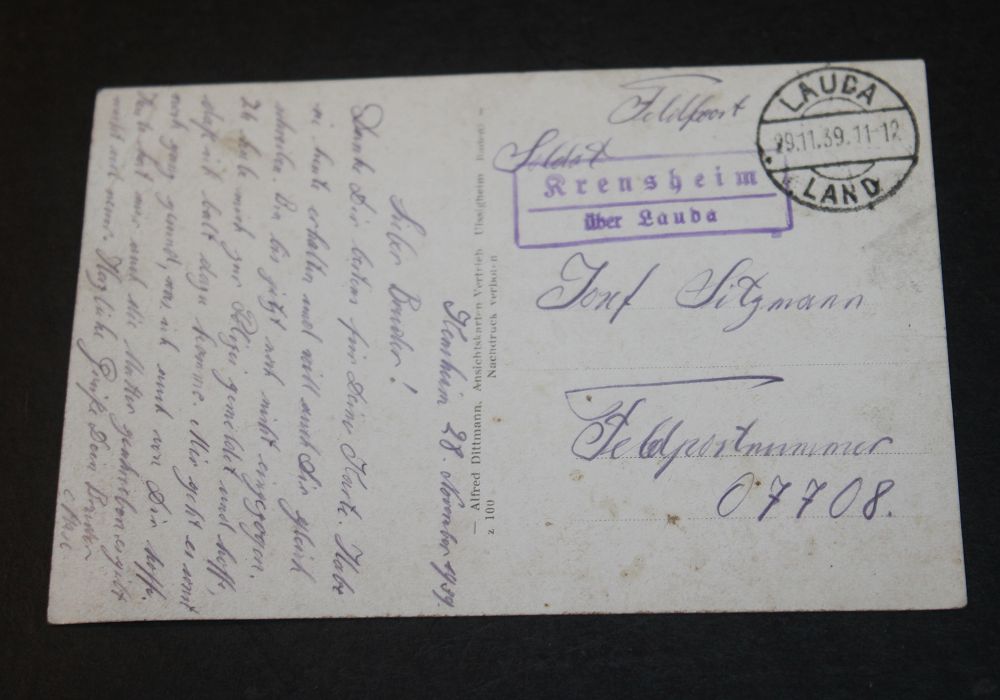 Feldpost
Soldat
LAUDA
29.11.39.11-12
LAND
Krensheim
über Lauda
Josef Sitzmann
Feldpostnummer
07708.
— Alfred Dittmann, Ansichtskarten-Vertrieb Uissigheim
z 100 Nachdruck verboten
28. November 1939.
Lieber Bruder!
Danke Dir bestens für Deine Karte. Habe
heute erhalten und will auch Dir gleich
schreiben. Bin bis jetzt noch nicht eingezogen.
habe mich zur gemeldet und hoffe,
daß ich bald dazu komme. Mir geht es sonst
noch ganz gesund, was ich auch von Dir hoffe.
mir auch die Mutter geschrieben
nicht viel neues. Herzliche Grüße Dein Bruder